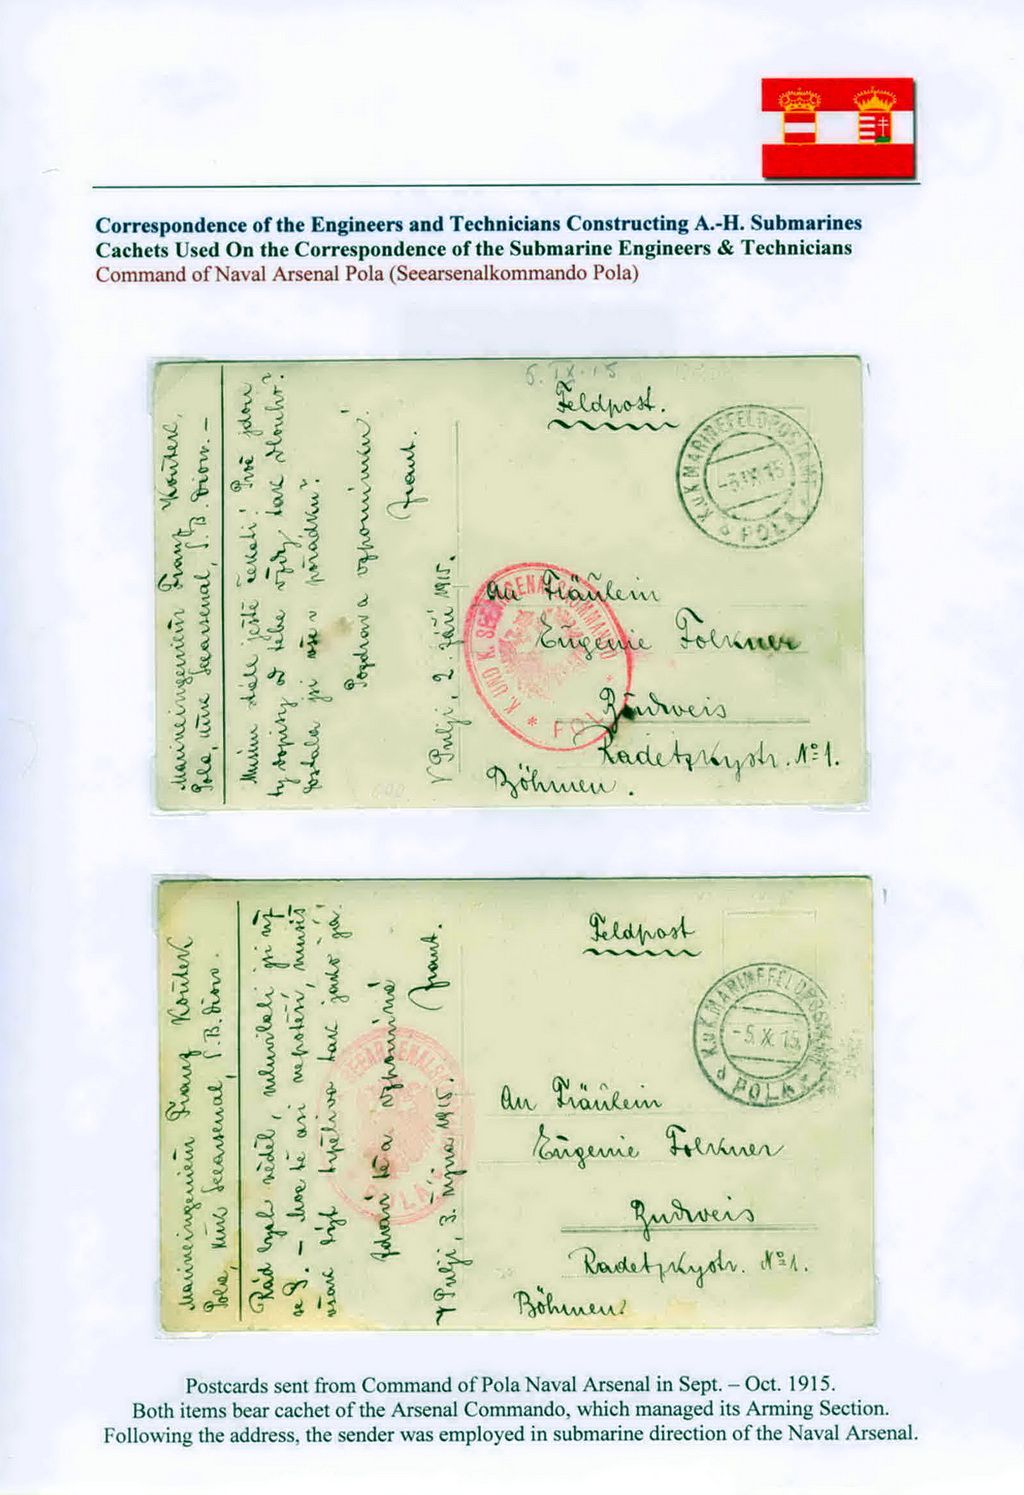 Correspondence of the Engineers and Technicians Constructing A.-H. Submarines
Cachets Used On the Correspondence of the Submarine Engineers & Technicians
Command of Naval Arsenal Pola (Seearsenalkommando Pola)
Marineingenieur Franz
Pola, Seearsenal, S.B. Divon. -
Musím dále ještě čekati! Proč jdou
ty dopisy od tebe vždy tak dlouho?
jsi vše v pořádku?
Pozdrav a vzpomínku!
Frant.
V Pulji, 2. září 1915.
6. IX. 15
Feldpost.
K.u.K. MARINEFELDPOSTAMT
-5. IX. 15
POLA
K. UND K. SEEARSENALSKOMMANDO
* POLA *
An Fräulein
Eugenie Folkner
Budweis
Radetzkystr. Nº 1.
Böhmen.
Marineingenieur Franz
Pola, K.u.K. Seearsenal, S.B. Divon.
Rád bych věděl, nemýlil jsi
se J. - Moc tě asi nepotěší, musíš
však být trpělivá tak jako já.
Zdraví tě a vzpomíná
Frant.
V Pulji, 3. října 1915.
SEEARSENALSKO
POLA
Feldpost
K.u.K. MARINEFELDPOSTAMT
-5. X. 15
POLA
An Fräulein
Eugenie Folkner
Budweis
Radetzkystr. Nº 1.
Böhmen
Postcards sent from Command of Pola Naval Arsenal in Sept. – Oct. 1915.
Both items bear cachet of the Arsenal Commando, which managed its Arming Section.
Following the address, the sender was employed in submarine direction of the Naval Arsenal.